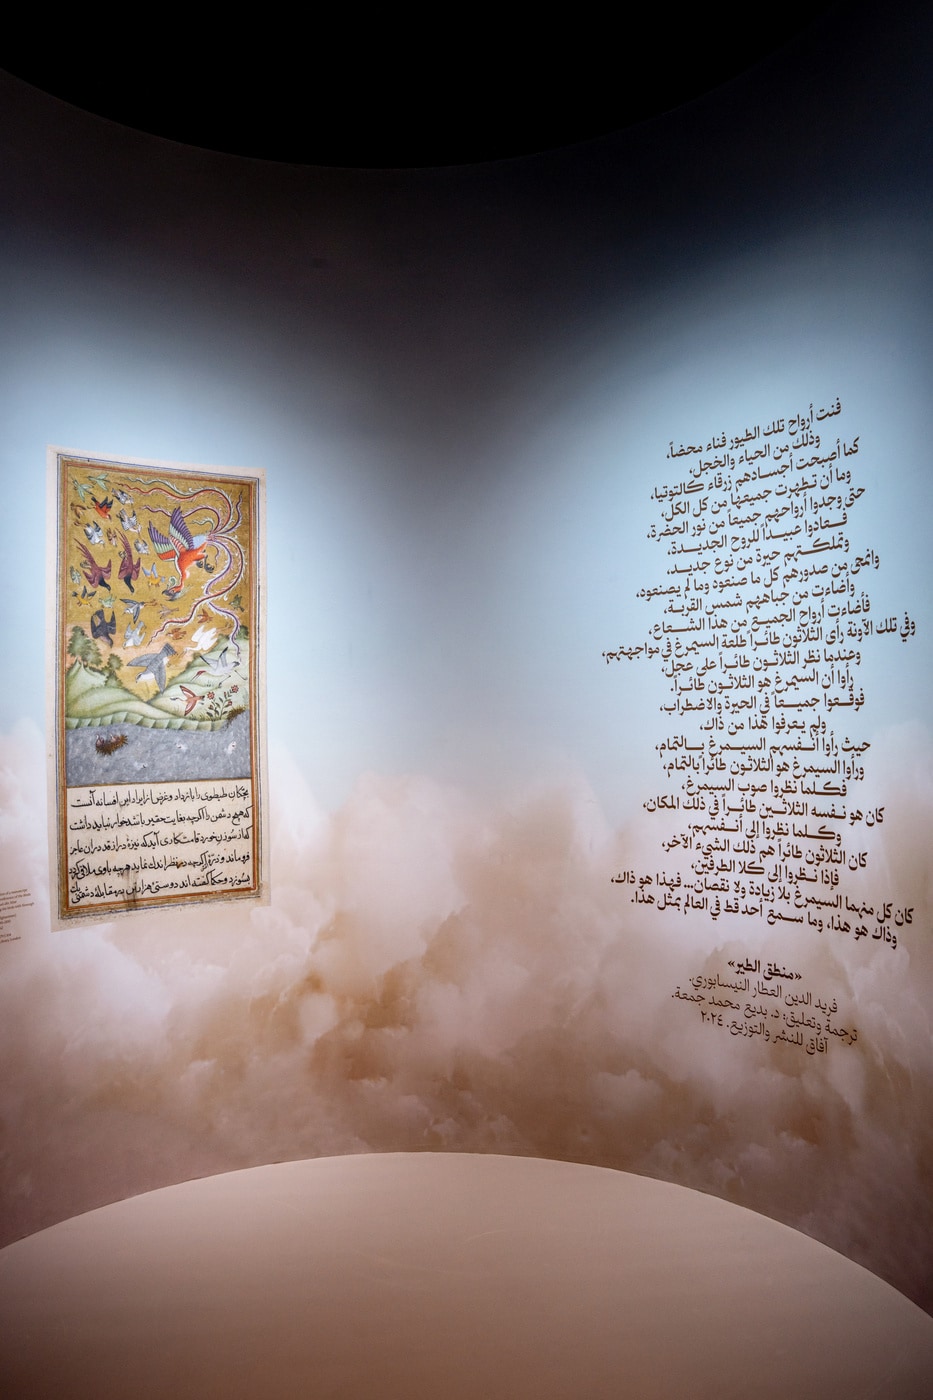 فنت أرواح تلك الطيور فناء محضاً،
وذلك من الحياء والخجل،
كما أصبحت أجسادهم زرقاء كالتوتيا،
وما أن تطهرت جميعها من كل الكل،
حتى وجدوا أرواحهم جميعاً من نور الحضرة،
فعادوا عبيداً للروح الجديدة،
وتملكتهم حيرة من نوع جديد،
وانمحى من صدورهم كل ما صنعوه وما لم يصنعوه،
وأضاءت من جباههم شمس القربة،
فأضاءت أرواح الجميع من هذا الشعاع،
وفي تلك الآونة رأى الثلاثون طائراً طلعة السيمرغ في مواجهتهم،
وعندما نظر الثلاثون طائراً على عجل،
رأوا أن السيمرغ هو الثلاثون طائراً.
فوقعوا جميعاً في الحيرة والاضطراب،
ولم يعرفوا هذا من ذاك،
حيث رأوا أنفسهم السيمرغ بالتمام،
ورأوا السيمرغ هو الثلاثون طائراً بالتمام،
فكلما نظروا صوب السيمرغ،
كان هو نفسه الثلاثين طائراً في ذلك المكان،
وكلما نظروا إلى أنفسهم،
كان الثلاثون طائراً هم ذلك الشيء الآخر،
فإذا نظروا إلى كلا الطرفين،
كان كل منهما السيمرغ بلا زيادة ولا نقصان... فهذا هو ذاك،
وذاك هو هذا، وما سمع أحد قط في العالم بمثل هذا.
«منطق الطير»
فريد الدين العطار النيسابوري.
ترجمة وتعليق: د. بديع محمد جمعة.
آفاق للنشر والتوزيع. ٢٠٢٤
بچكان طيطوى را باز داد و غرض از ايراد اين افسانه آنست
كه هيچ دشمن را اگرچه بغايت حقير باشد خوار نبايد داشت